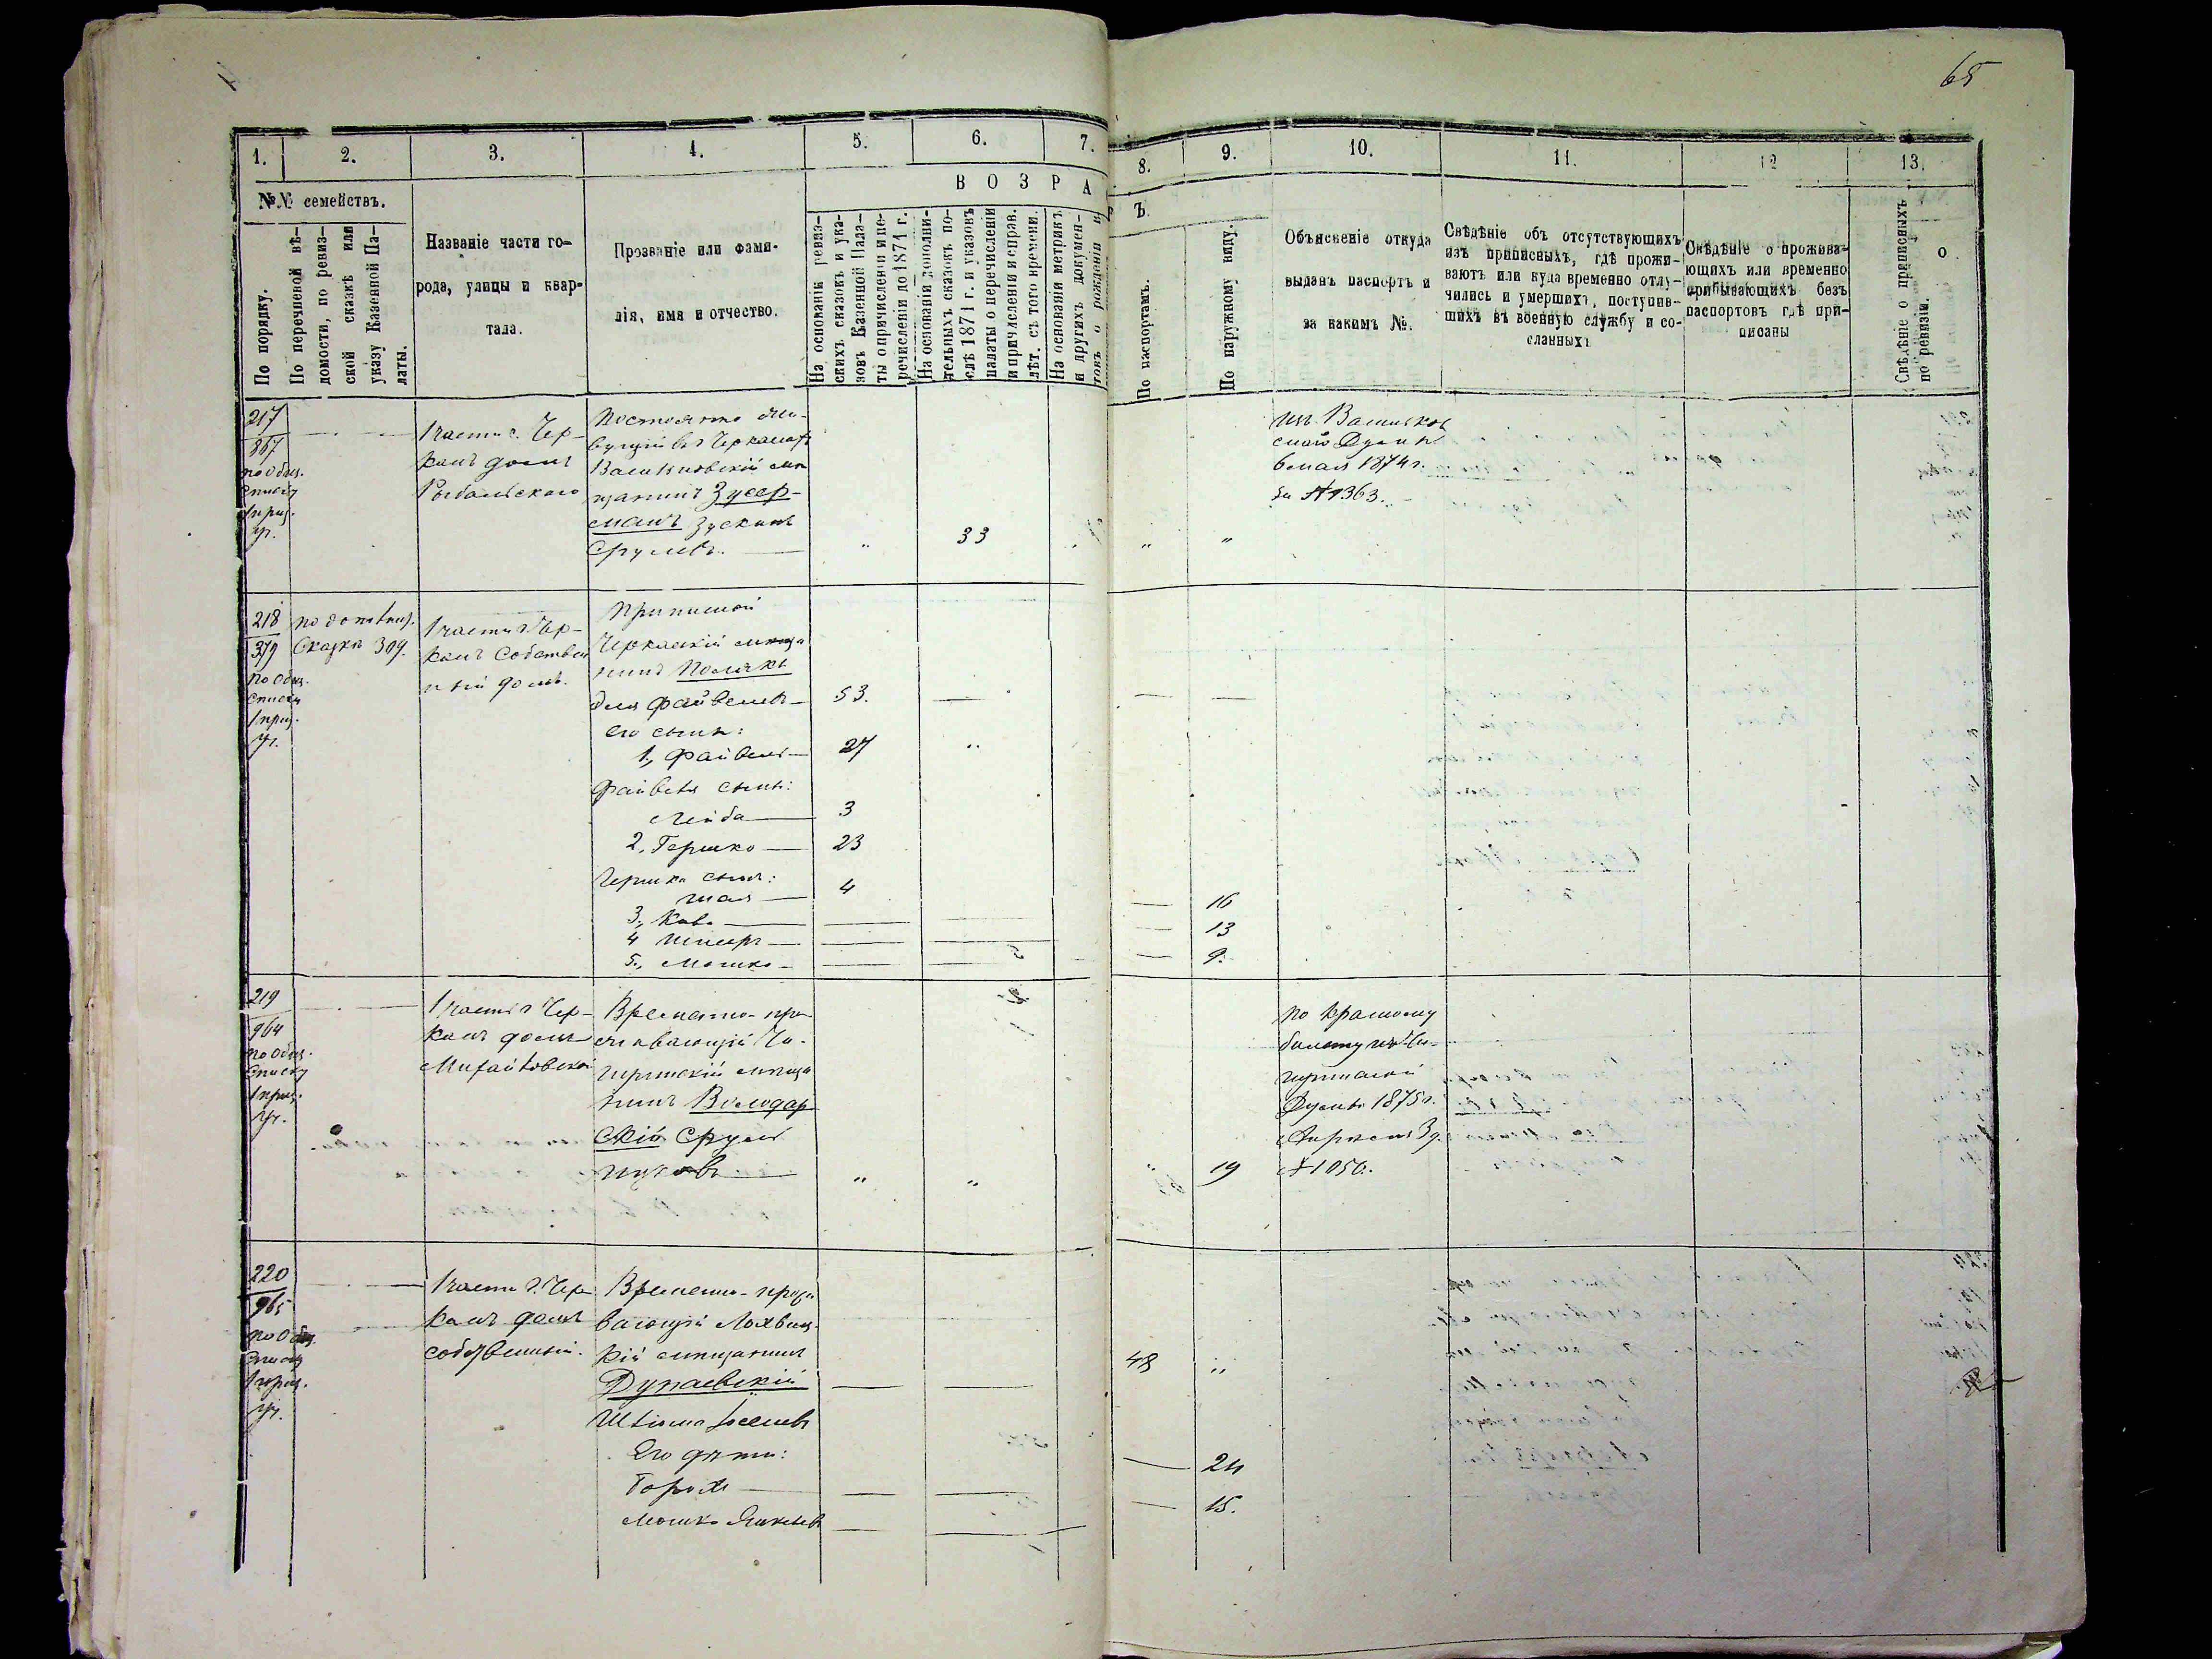 65
1.
2.
3.
4.
5.
6.
7.
8.
9.
10.
11.
12
13.
№№ семействъ.
По порядку.
По перечневой вѣ-
домости, по ревиз-
ской сказкѣ или
указу Казенной Па-
латы.
Названіе части го-
рода, улицы и квар-
тала.
Прозваніе или фами-
лія, имя и отчество.
ВОЗРА
На основаніи ревиз-
скихъ сказокъ и ука-
зовъ Казенной Пала-
ты о причисленіи и пе-
речисленіи до 1871 г.
На основаніи дополни-
тельныхъ сказокъ по-
слѣ 1871 г. и указовъ
палаты о перечисленіи
и причисленіи и справ.
лѣт. съ того времени.
На основаніи метрикъ
и другихъ докумен-
товъ о рожденіи и
Ъ.
По паспортамъ.
По наружному виду.
Объясненіе откуда
выданъ паспортъ и
за какимъ №.
Свѣдѣніе объ отсутствующихъ
изъ приписныхъ, гдѣ прожи-
ваютъ или куда временно отлу-
чились и умершихъ, поступив-
шихъ въ военную службу и со-
сланныхъ
Свѣдѣніе о прожива-
ющихъ или временно
прибывающихъ безъ
паспортовъ гдѣ при-
писаны
Свѣдѣніе о приписныхъ
по ревизіи.
о
217
867
по общ.
списку
1 приз.
уч.
1 части г. Чер-
касъ домъ
Рыбальскаго
Постоянно жи-
вущій въ Черкасахъ
Васильковскій мѣ
щанинъ Зусер-
манъ Зускинъ
Срулевъ.
33
изъ Васильков
ской Думы
6 мая 1874 г.
за №1363.
218
379
по общ.
списку
1 приз.
уч.
Сказкѣ 309.
1 части г. Чер-
касъ собствен
ный домъ.
Приписной
Черкаскій мѣща
нинъ Полякъ
Файвелевъ 53.
его сыны:
1, Файвель 27
Файвеля сынъ:
Лейба 3
2. Гершко 23
Гершка сынъ:
шая 4
3, 16
4 13
5., Мошко 9.
219
964
по общ.
списку
1 приз.
уч.
1 части г. Чер-
касъ домъ
Временно-про
живающій Чи-
гиринскій мѣща
нинъ Володар
скій Сруль
19
по
билету изъ Чи-
гиринской
Думы 1875 г.
Апрѣля 3 д.
№1050.
220
965
по общ.
списку
1 приз.
уч.
1 части г. Чер
касъ домъ
собственный.
Временно-прожи
вающій Лохвиц-
кій мѣщанинъ
Дунаевскій
48
Его дѣти:
24
Мошко 15.